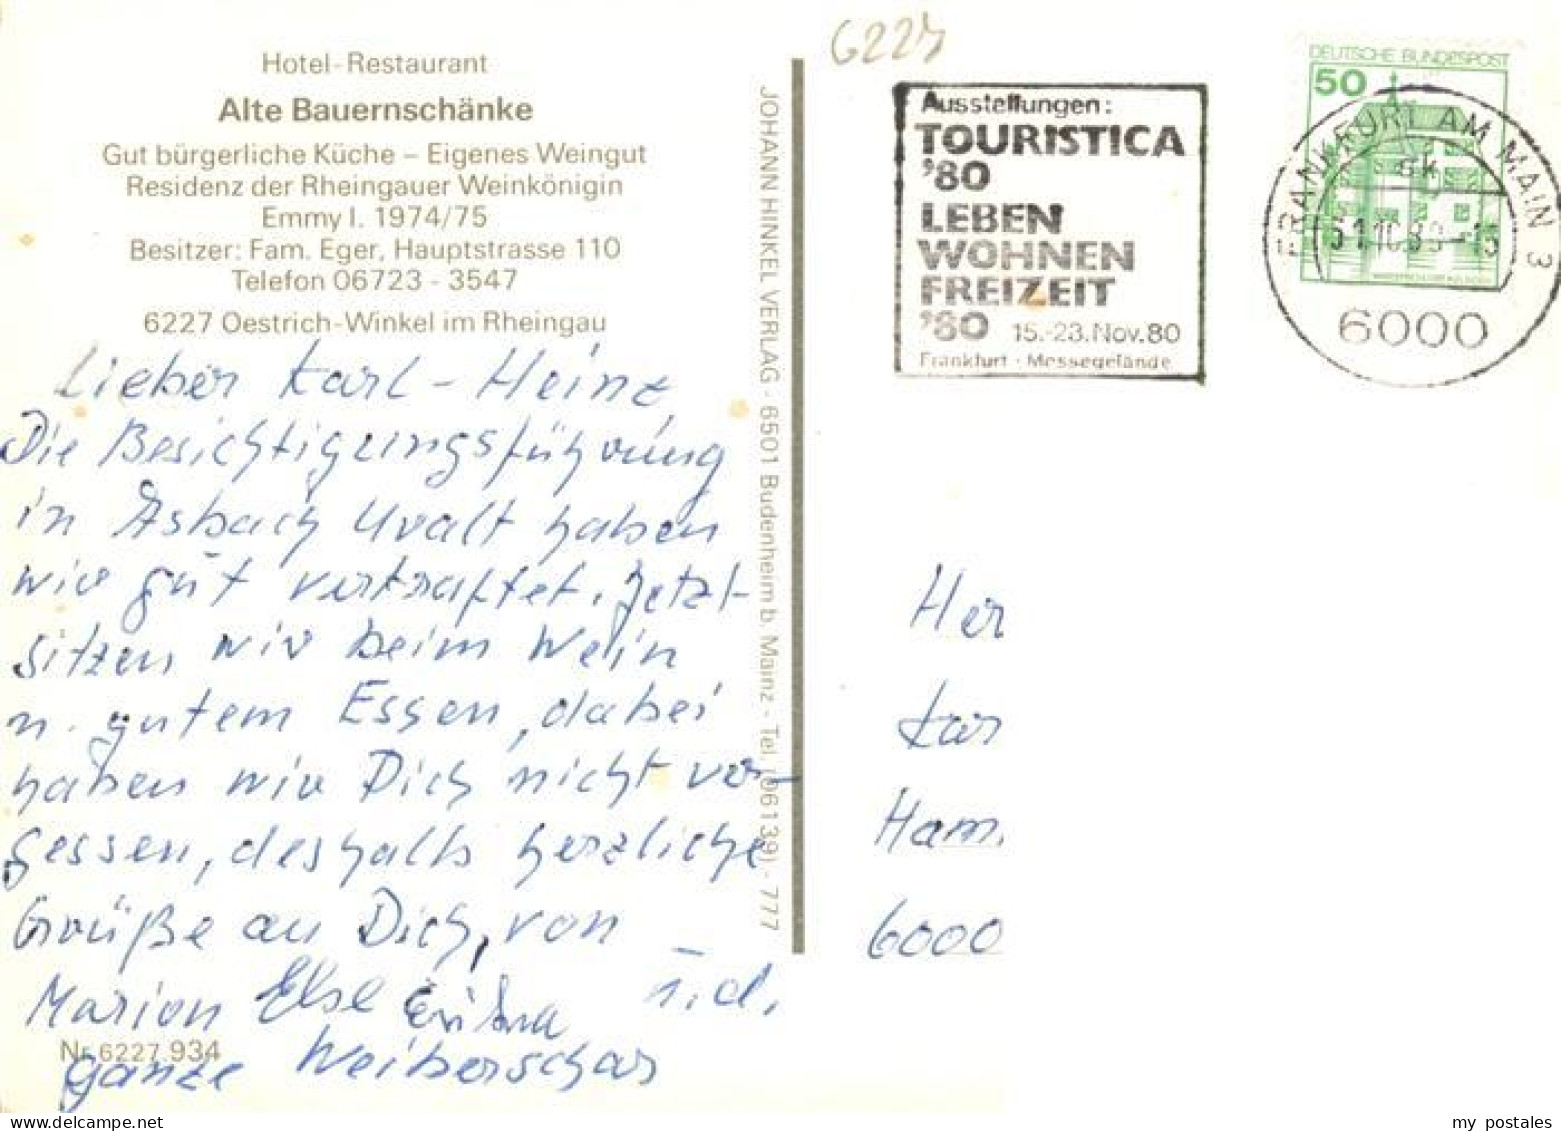 Hotel-Restaurant
Alte Bauernschänke
Gut bürgerliche Küche – Eigenes Weingut
Residenz der Rheingauer Weinkönigin
Emmy I. 1974/75
Besitzer: Fam. Eger, Hauptstrasse 110
Telefon 06723 - 3547
6227 Oestrich-Winkel im Rheingau
Lieber Karl-Heinz,
Die Besichtigungsführung
in Asbach Uralt haben
wir gut verkraftet. Jetzt
sitzen wir beim Wein
u. gutem Essen, dabei
haben wir Dich nicht ver-
gessen, deshalb herzliche
Grüße an Dich, von
Marion Else u. d.
ganze Weiberschar
Nr. 6227 934
JOHANN HINKEL VERLAG - 6501 Budenheim b. Mainz - Tel. (06139) - 777
6225
Ausstellungen:
TOURISTICA
'80
LEBEN
WOHNEN
FREIZEIT
'80 15.-23.Nov.80
Frankfurt · Messegelände
DEUTSCHE BUNDESPOST
50
FRANKFURT AM MAIN 3
6000
Her
Kar
Ham
6000
my postales